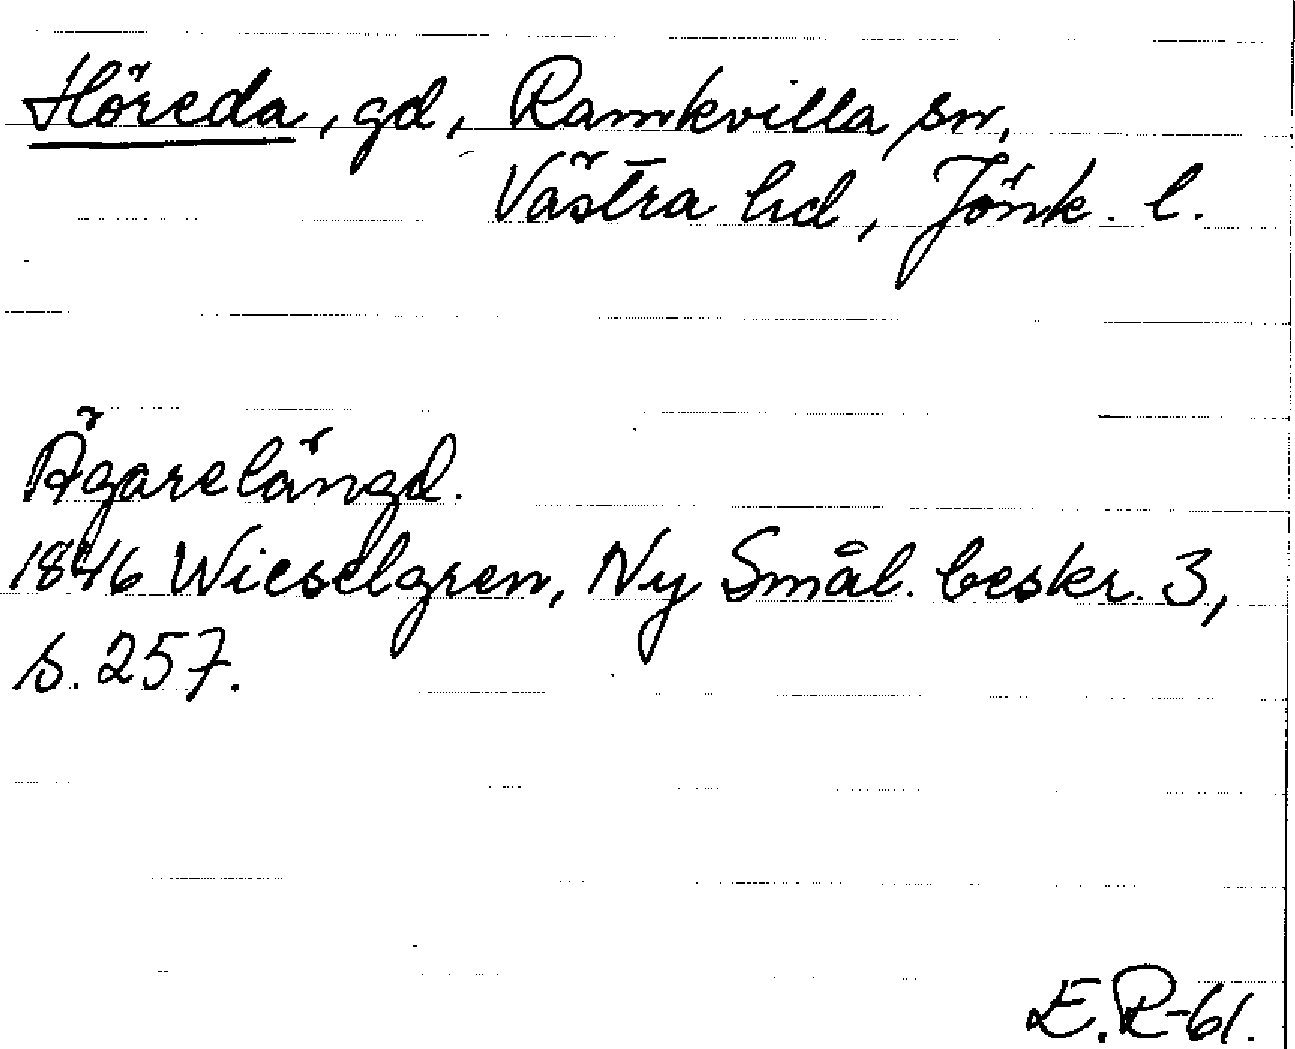 Höreda, gd, Ramkvilla sn,
Västra hd, Jönk. l.
Ägarelängd.
1846 Wieselgren, Ny Smål. beskr. 3,
s. 257.
E.R-61.